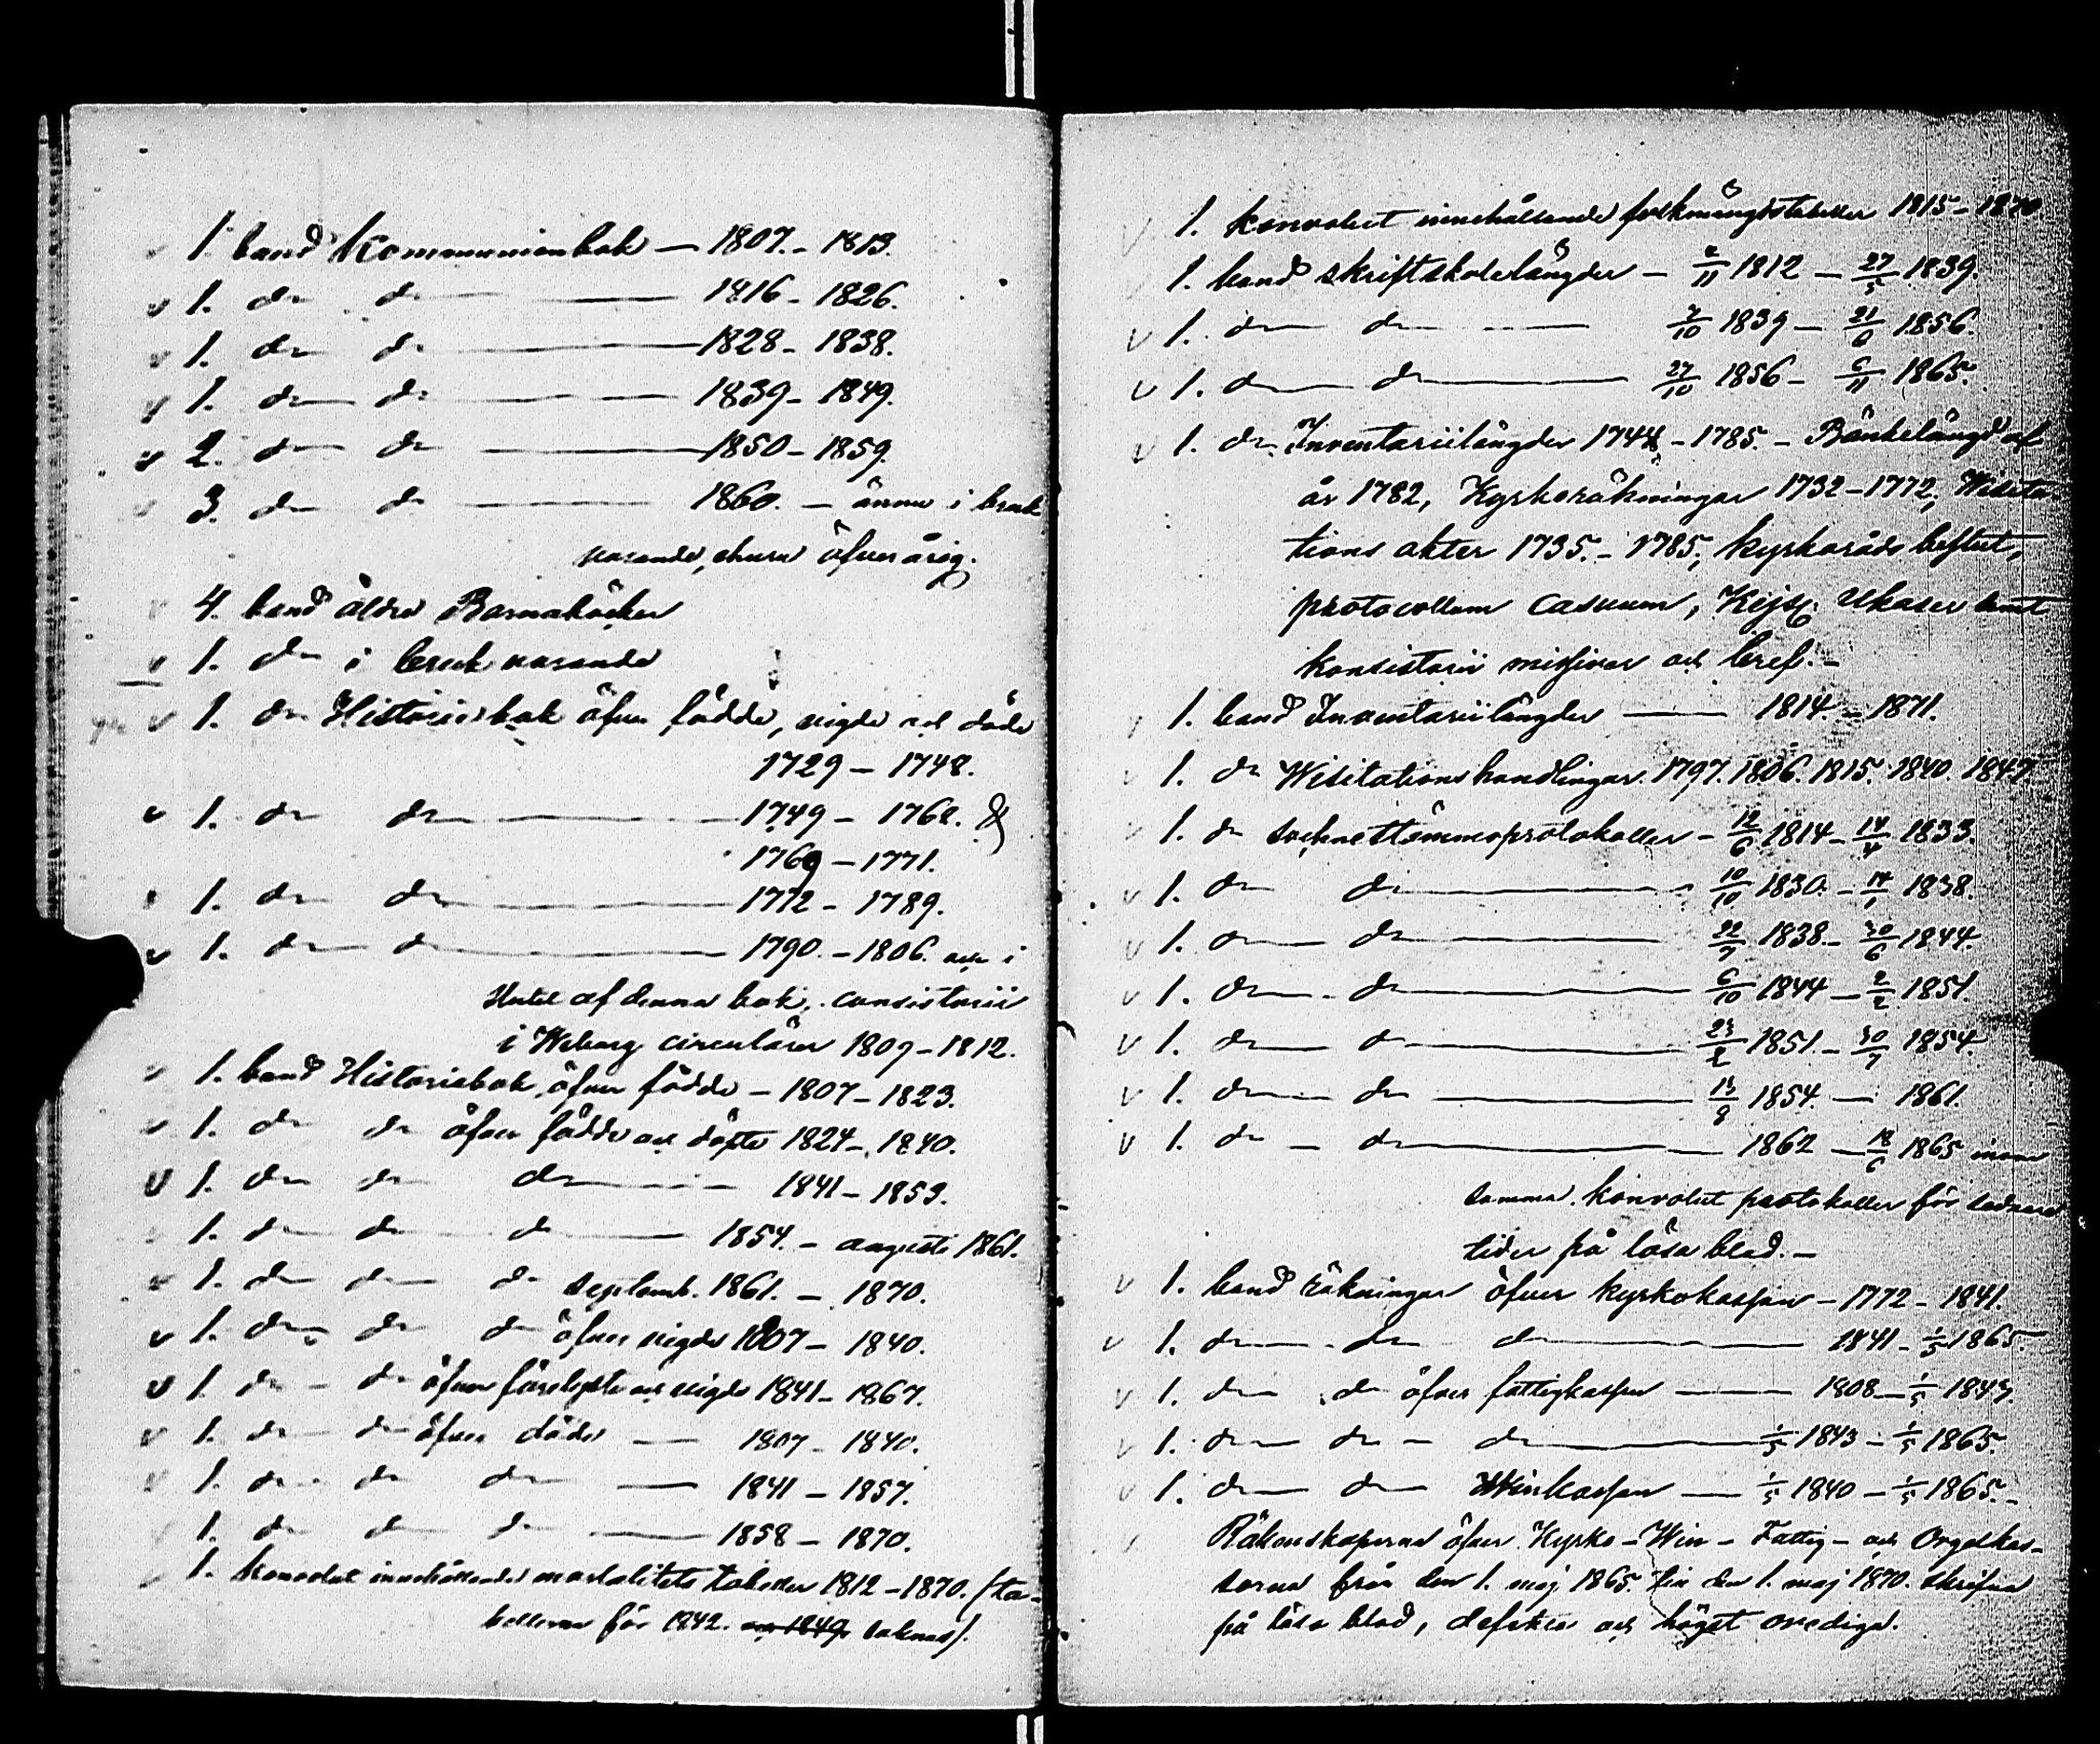 1. band Kommunionbok — 1807. - 1813.
v 1. do do — 1816 - 1826.
v 1. do do — 1828 - 1838.
v 1. do do — 1839 - 1849.
v 2. do do — 1850 - 1859.
v 3. do do — 1860. — ännu i bruk
varande, ehuru öfverårig.
v 4. band äldre Barnaböcker
v 1. do i bruk varande
v 1. do Historiebok öfver födde, vigde och döde
1729 — 1748.
v 1. do do — 1749 - 1762. &
1769 — 1771.
v 1. do do — 1772 - 1789.
v 1. do do — 1790. - 1806. och i
slutet af denna bok, consistorii
i Wiborg circulärer 1809 - 1812.
v 1. band Historiebok öfver födde - 1807 - 1823.
v 1. do do öfver födde och döpte 1824 - 1840.
v 1. do do do — 1841 - 1853.
1. do do do — 1854. - augusti 1861.
v 1. do do do septemb. 1861. — 1870.
v 1. do do do öfver vigde 1807 - 1840.
v 1. do - do öfver förelyste och vigde 1841 - 1867.
v 1. do do öfver döde — 1807 - 1840.
v 1. do do do — 1841 - 1857.
1. do do do — 1858 - 1870.
1. konvolut innehållande mortalitets tabeller 1812 - 1870. (ta-
bellerna för 1842. och 1849 saknas).
v 1. konvolut innehållande folkmängdstabeller 1815 - 1870
1. band skriftskolelängder - 2/11 1812 - 27/5 1839.
v 1. do do — 7/10 1839 - 21/6 1856.
v 1. do do — 27/10 1856 - 6/11 1865.
v 1. do Inventariilängder 1744 - 1785. - Bänkelängd af
år 1782, Kyrkoräkningar 1732 - 1772, Wisita-
tions akter 1735. - 1785, kyrkoråds beslut,
protocollum casuum, Kejs. Ukaser samt
konsistorii missiver och bref. -
v 1. band Inventariilängder — 1814. - 1871.
v 1. do Wisitationshandlingar. 1797. 1806. 1815. 1840. 1847
v 1. do sockenstämmoprotokoller - 12/6 1814 - 14/4 1833.
v 1. do do — 10/10 1830. - 14/1 1838.
v 1. do do — 22/7 1838. - 30/6 1844.
v 1. do do — 6/10 1844 - 2/2 1851.
v 1. do do — 23/2 1851. - 30/7 1854.
v 1. do do — 13/8 1854. — 1861.
v 1. do - do — 1862 - 18/6 1865 inom
samma konvolut protokoller för sednare
tider på lösa blad. -
v 1. band räkningar öfver kyrkokassan - 1772 - 1841.
v 1. do do do — 1841 - 1/5 1865.
v 1. do do öfver fattigkassan — 1808 - 1/5 1843.
v 1. do do - do — 1/5 1843 - 1/5 1865.
v 1. do do Winkassan — 1/5 1840 - 1/5 1865. -
Räkenskaperna öfver Kyrko - Win - Fattig - och Orgelkas-
sorna från den 1. maj 1865. till den 1. maj 1870. skrifna
på lösa blad, defekta och högst orediga.